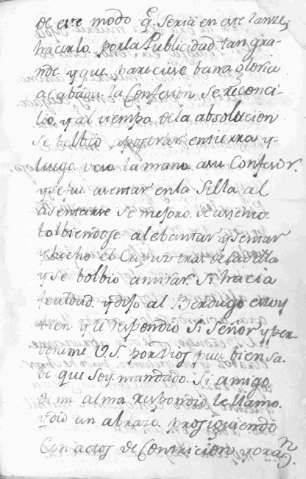 de ese modo q̃ seria en este lanze
hacerlo por la Publicidad tan gra-
nde y que pareciese bana gloria
acabada la Confesion se reconci-
lio, y al tiempo de la absolucion
se bolbio a poner en tierra y
luego veso la mano a su Confesor.
y se fue a sentar en la Silla al
asentarse se mejoro de asiento
bolbiendose a lebantar y sentar
y hecho el Cuerpo atras de la silla
y se bolbio a mirar si hacia
fealdad, y dijo al Berdugo estoy
bien y le respondio si Señor y per-
doneme V.S. por Dios pues bien sa-
be que soy mandado. Si amigo
de mi alma respondio le llamo
dio un abrazo. prosiguiendo
Con actos de Contricion y oraⁿ